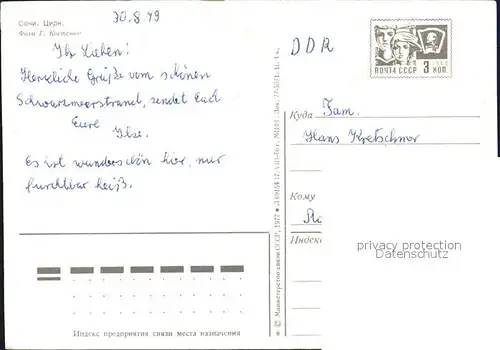 30.8.79
Сочи. Цирк.
Фото Г. Костенко
Ihr Lieben!
Herzliche Grüße vom schönen
Schwarzmeerstrand, sendet Euch
Eure
Ilse.
Es ist wunderschön hier, nur
furchtbar heiß.
DDR
ПОЧТА СССР 3 КОП.
Куда Fam.
Hans Kretschmer
Кому
Индекс
privacy protection
Datenschutz
© Министерство связи СССР, 1977
Индекс предприятия связи места назначения